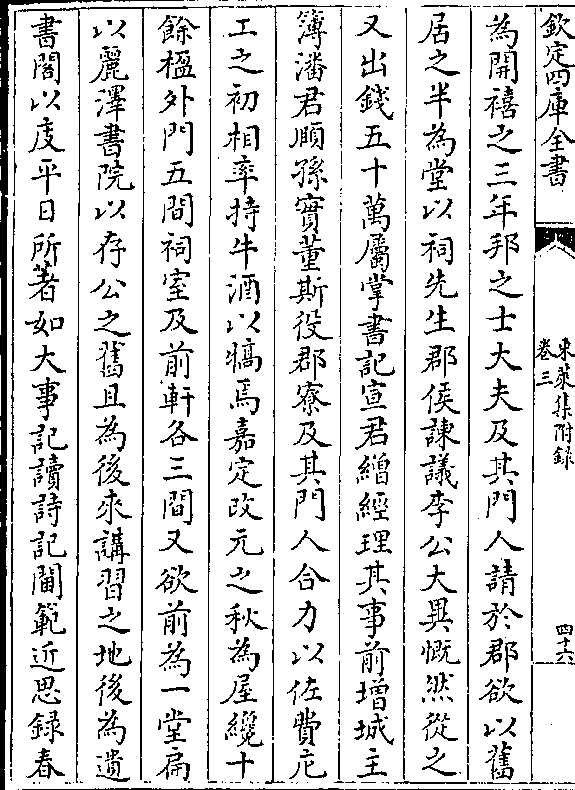 欽定四庫全書
東萊集附錄
卷三
四十六
為開禧之三年邦之士大夫及其門人請於郡欲以舊
居之半為堂以祠先生郡侯諫議李公大異慨然從之
又出錢五十萬屬掌書記宣君繒經理其事前增城主
簿潘君願孫實董斯役郡寮及其門人合力以佐費庀
工之初相率持牛酒以犒焉嘉定改元之秋為屋纔十
餘楹外門五間祠室及前軒各三間又欲前為一堂扁
以麗澤書院以存公之舊且為後來講習之地後為遺
書閣以庋平日所著如大事記讀詩記閫範近思錄春